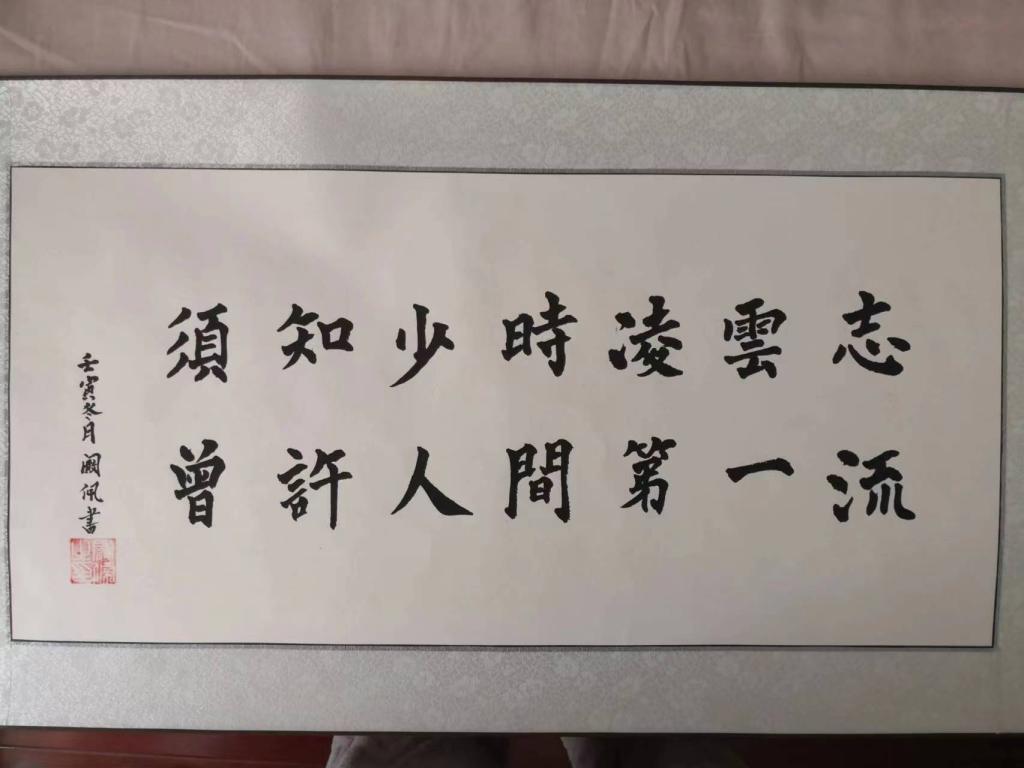 須知少時凌雲志
曾許人間第一流
壬寅冬月闕佩書